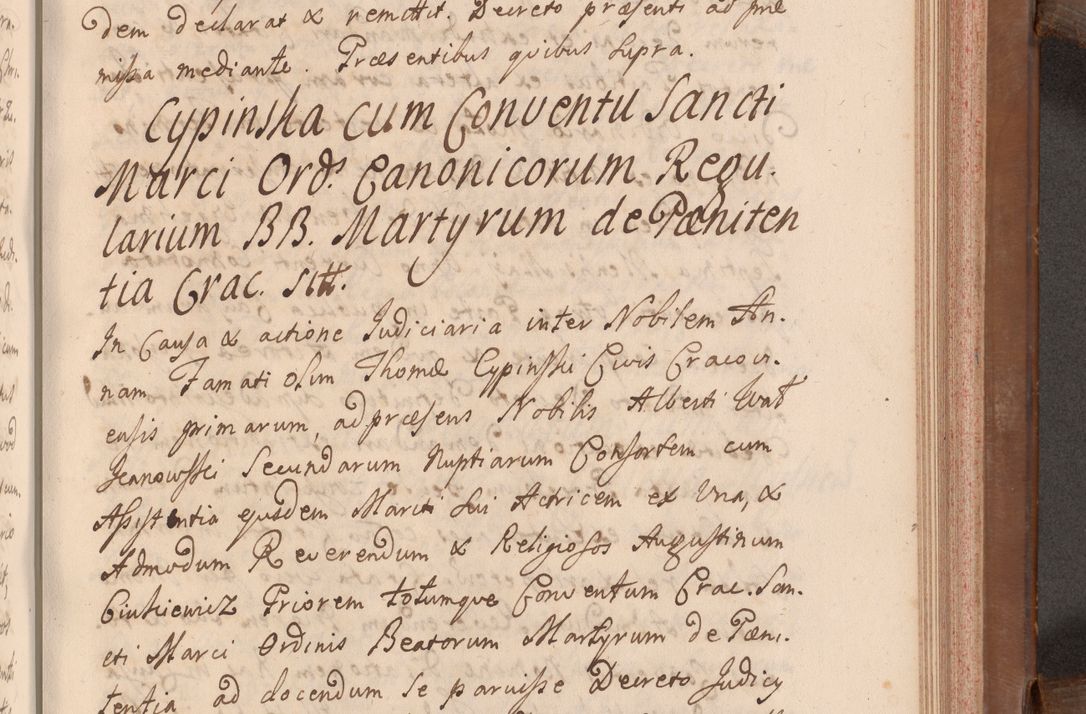 dem declarat & remittit. Decreto præsenti ad præ
missa mediante. Præsentibus quibus supra.
Cypinska cum Conventu Sancti
Marci Ord: Canonicorum Regu.
larium BB. Martyrum de Pœniten
tia Crac. sitt.
In Causa & actione Judiciaria inter Nobilem An.
nam Famati olim Thomæ Cypinski Civis Cracovi.
ensis primarum, ad præsens Nobilis Alberti
Jeanowski Secundarum Nuptiarum Consortem cum
Assistentia ejusdem Mariti sui Actricem ex una, &
Admodum Reverendum & Religiosos Augustinum
Ciukiewicz Priorem totumque Conventum Crac. San.
cti Marci Ordinis Beatorum Martyrum de Pœni.
tentia ad docendum se paruisse Decreto Judicy